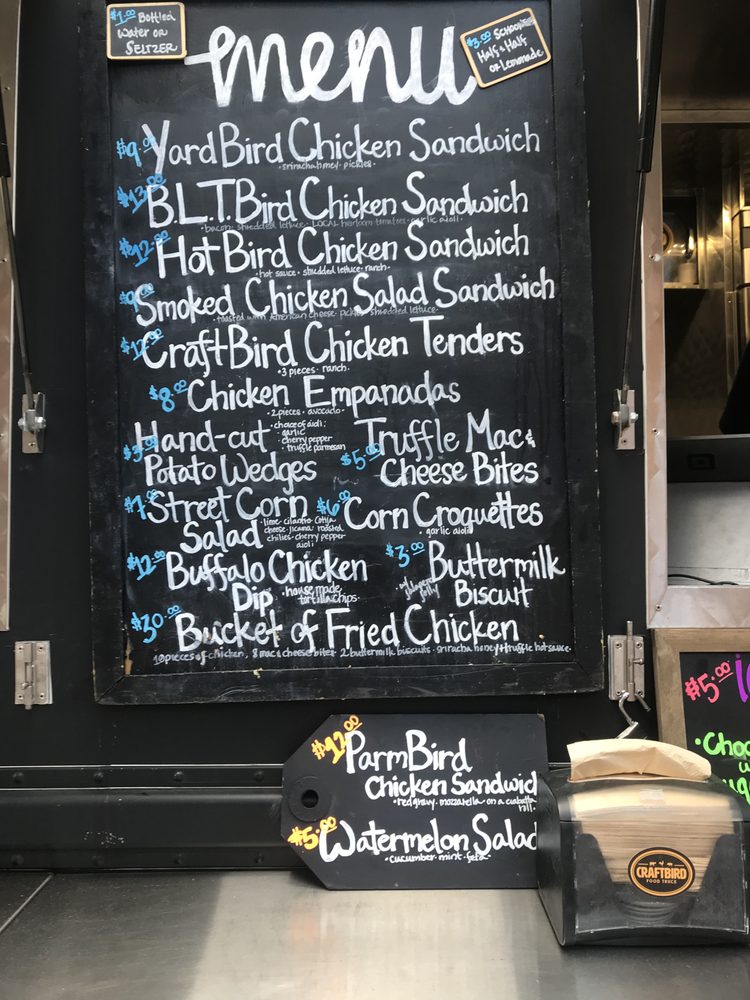 $1.00 Bottled
Water or
SELTZER
menu
$3.00
Half & Half
or Lemonade
$9.00 YardBird Chicken Sandwich
·sriracha honey· pickles·
$13.00 B.L.T. Bird Chicken Sandwich
·bacon· shredded lettuce· LOCAL heirloom tomatoes· garlic aioli·
$12.00 HotBird Chicken Sandwich
·hot sauce· shredded lettuce· ranch·
$9.00 Smoked Chicken Salad Sandwich
·toasted with American cheese· pickles· shredded lettuce·
$12.00 CraftBird Chicken Tenders
·3 pieces· ranch·
$8.00 Chicken Empanadas
·2 pieces· avocado·
$3.00 Hand-cut
Potato Wedges
·choice of aioli:
·garlic
·cherry pepper
·truffle parmesan
$5.00 Truffle Mac &
Cheese Bites
$7.00 Street Corn
Salad
·lime· cilantro· cotija
cheese· jicama· roasted
chilies· cherry pepper
aioli·
$6.00 Corn Croquettes
·garlic aioli·
$12.00 Buffalo Chicken
Dip
·house made
tortilla chips·
$3.00 Buttermilk
Biscuit
w/
jelly
$30.00 Bucket of Fried Chicken
10 pieces of chicken, 8 mac & cheese bites· 2 buttermilk biscuits· sriracha honey + truffle hot sauce·
$12.00 ParmBird
Chicken Sandwich
·red gravy· mozzarella· on a ciabatta
roll·
$5.00 Watermelon Salad
·cucumber· mint· feta·
CRAFTBIRD
FOOD TRUCK
$5.00